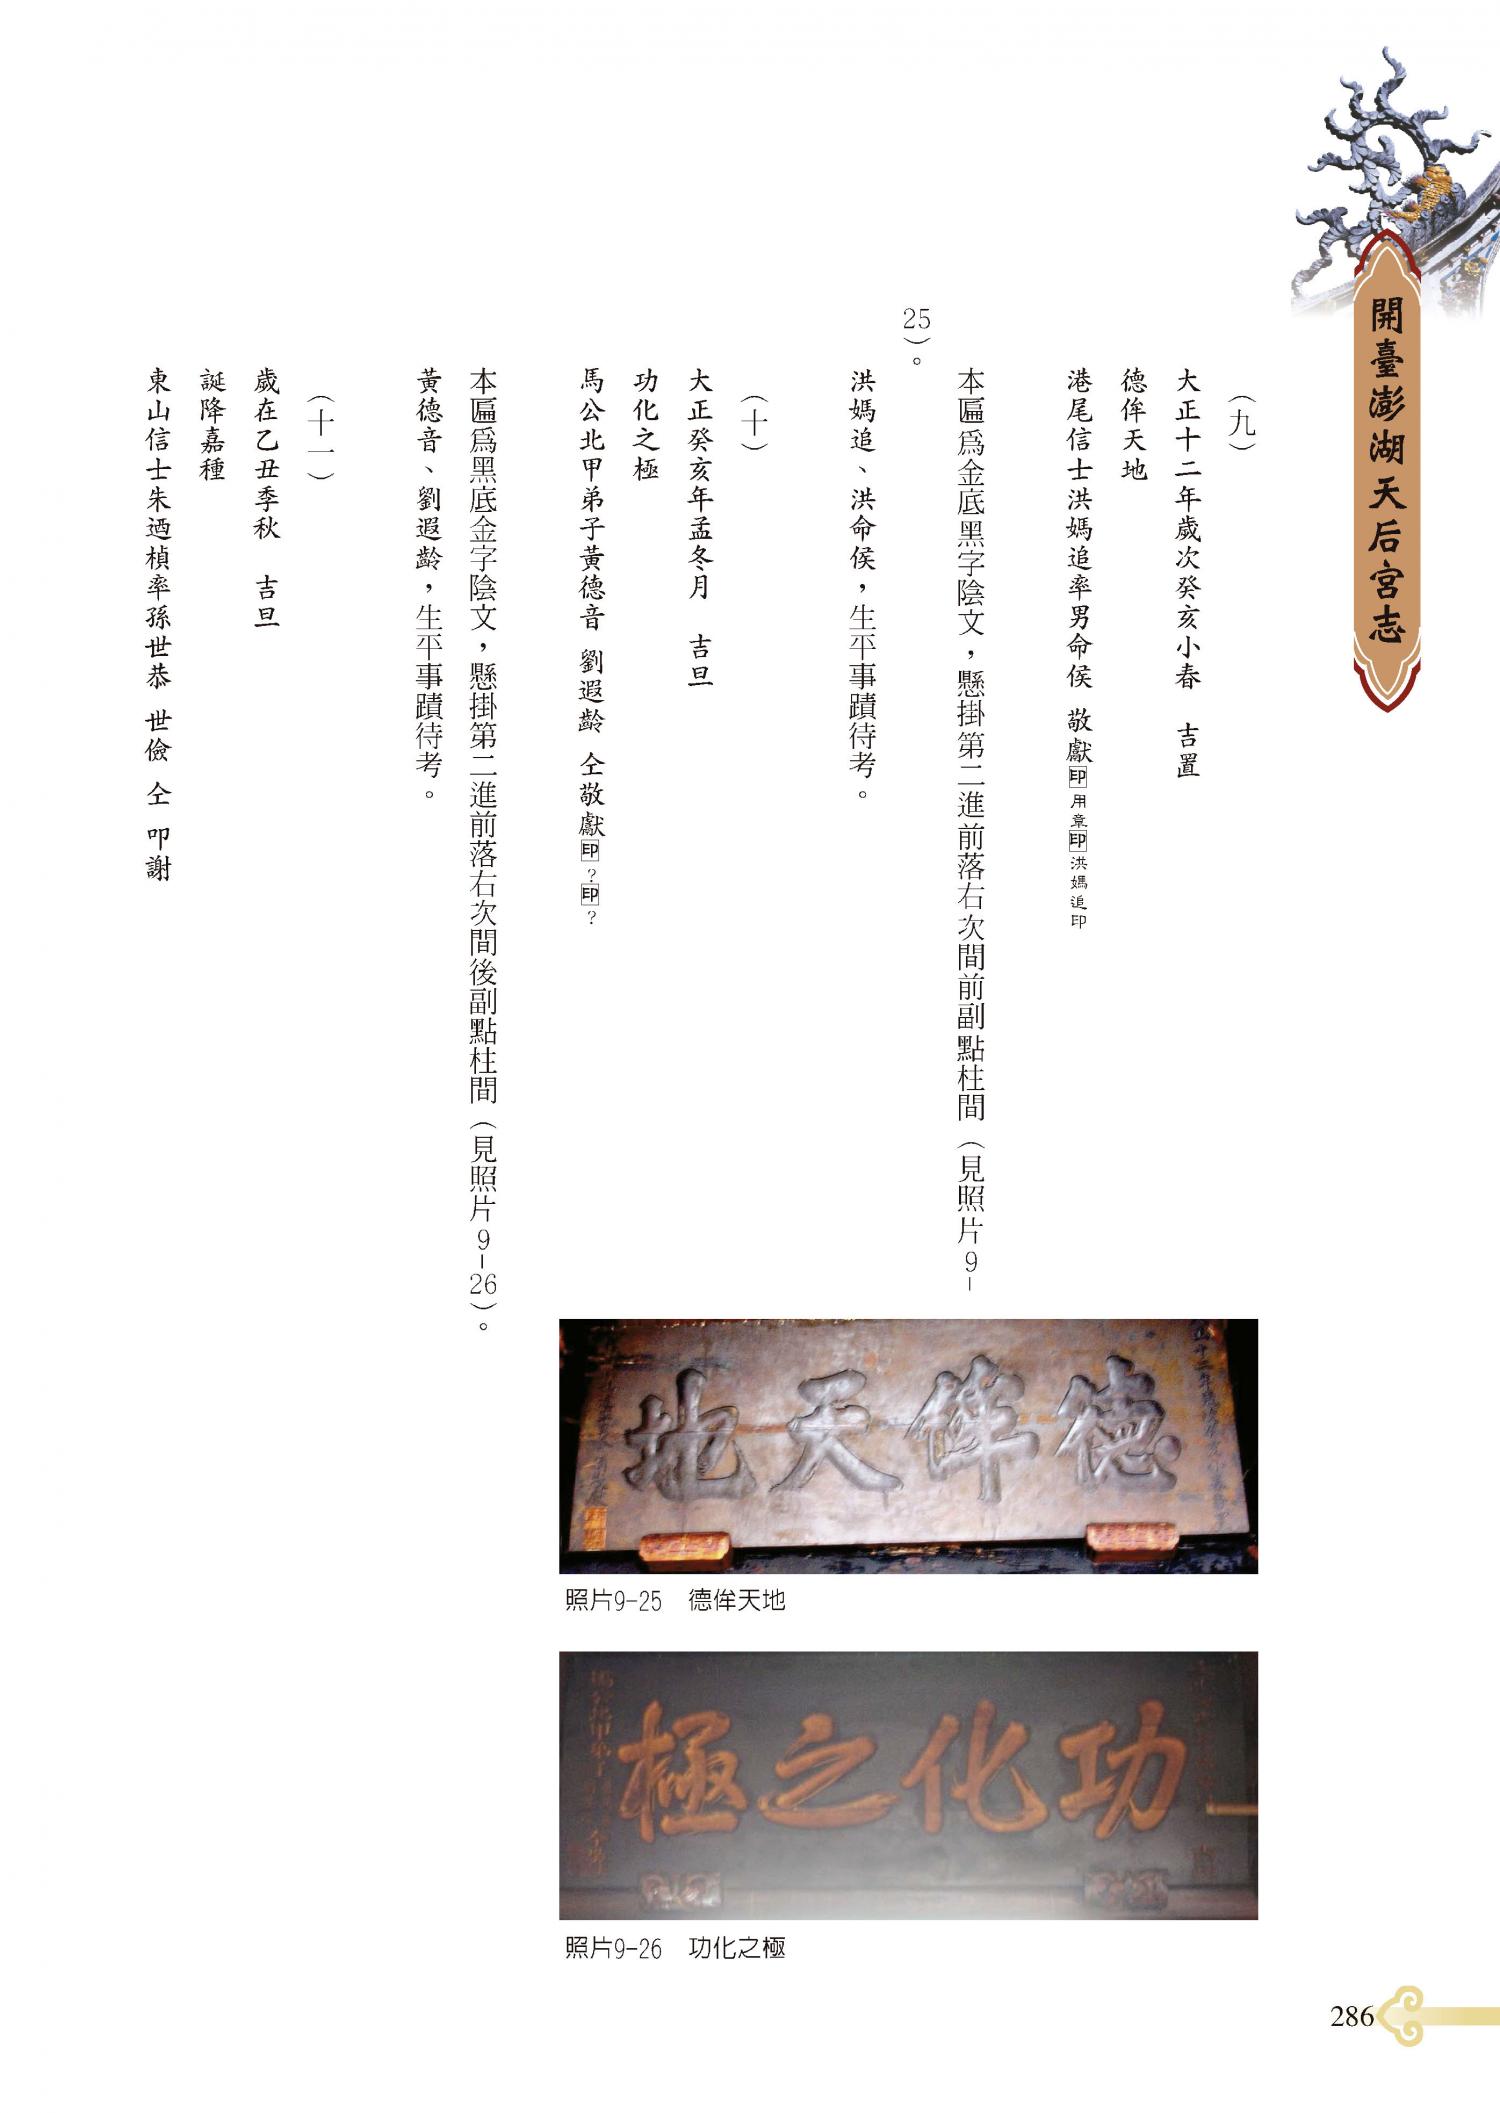 開臺澎湖天后宮志
（九）
大正十二年歲次癸亥小春　吉置
德侔天地
港尾信士洪媽追率男命侯 敬獻印用章印洪媽追印
本匾為金底黑字陰文，懸掛第二進前落右次間前副點柱間（見照片9-
25）。
洪媽追、洪命侯，生平事蹟待考。
（十）
大正癸亥年孟冬月　吉旦
功化之極
馬公北甲弟子黃德音 劉遐齡 仝敬獻印？印？
本匾為黑底金字陰文，懸掛第二進前落右次間後副點柱間（見照片9-26）。
黃德音、劉遐齡，生平事蹟待考。
（十一）
歲在乙丑季秋　吉旦
誕降嘉種
東山信士朱迺楨率孫世恭 世儉 仝 叩謝
德侔天地
照片9-25　德侔天地
功化之極
照片9-26　功化之極
286